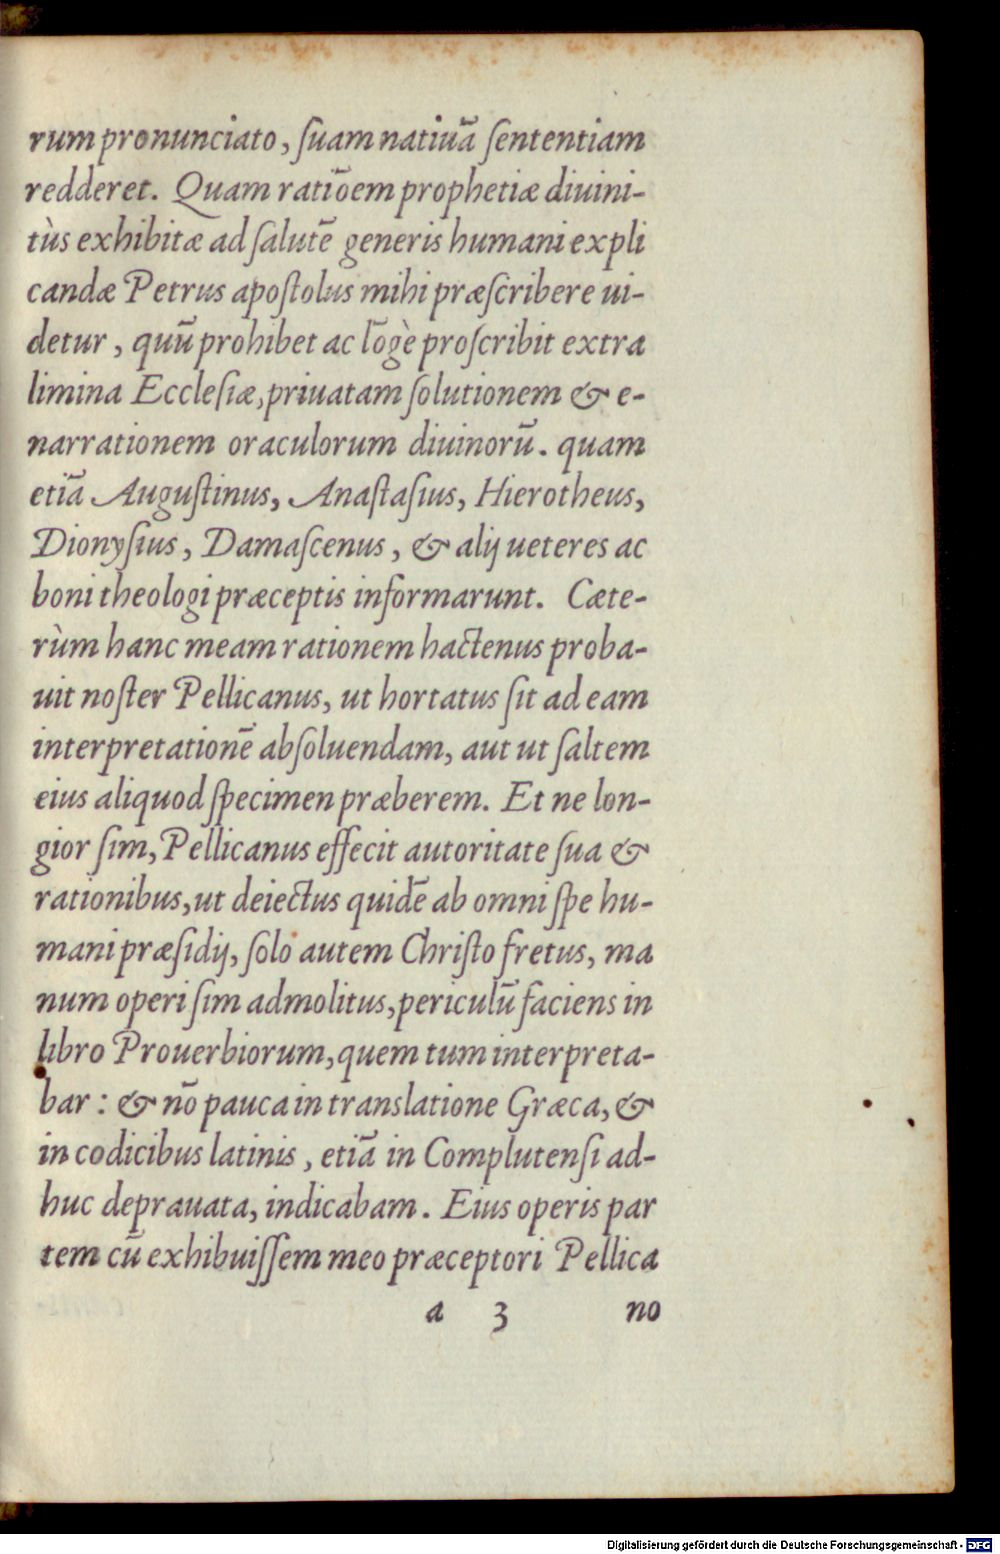 rum pronunciato, ſuam natiuā ſententiam
redderet. Quam ratiōem prophetiæ diuini-
tùs exhibitæ ad ſalutē generis humani expli
candæ Petrus apoſtolus mihi præſcribere ui-
detur, quū prohibet ac lōgè proſcribit extra
limina Eccleſiæ, priuatam ſolutionem & e-
narrationem oraculorum diuinorū. quam
etiā Auguſtinus, Anaſtaſius, Hierotheus,
Dionyſius, Damaſcenus, & alij ueteres ac
boni theologi præceptis informarunt. Cæte-
rùm hanc meam rationem hactenus proba-
uit noſter Pellicanus, ut hortatus ſit ad eam
interpretationē abſoluendam, aut ut ſaltem
eius aliquod ſpecimen præberem. Et ne lon-
gior ſim, Pellicanus effecit autoritate ſua &
rationibus, ut deiectus quidē ab omni ſpe hu-
mani præſidij, ſolo autem Chriſto fretus, ma
num operi ſim admolitus, periculū faciens in
libro Prouerbiorum, quem tum interpreta-
bar: & nō pauca in translatione Græca, &
in codicibus latinis, etiā in Complutenſi ad-
huc deprauata, indicabam. Eius operis par
tem cū exhibuiſſem meo præceptori Pellica
a 3 no
Digitalisierung gefördert durch die Deutsche Forschungsgemeinschaft - DFG